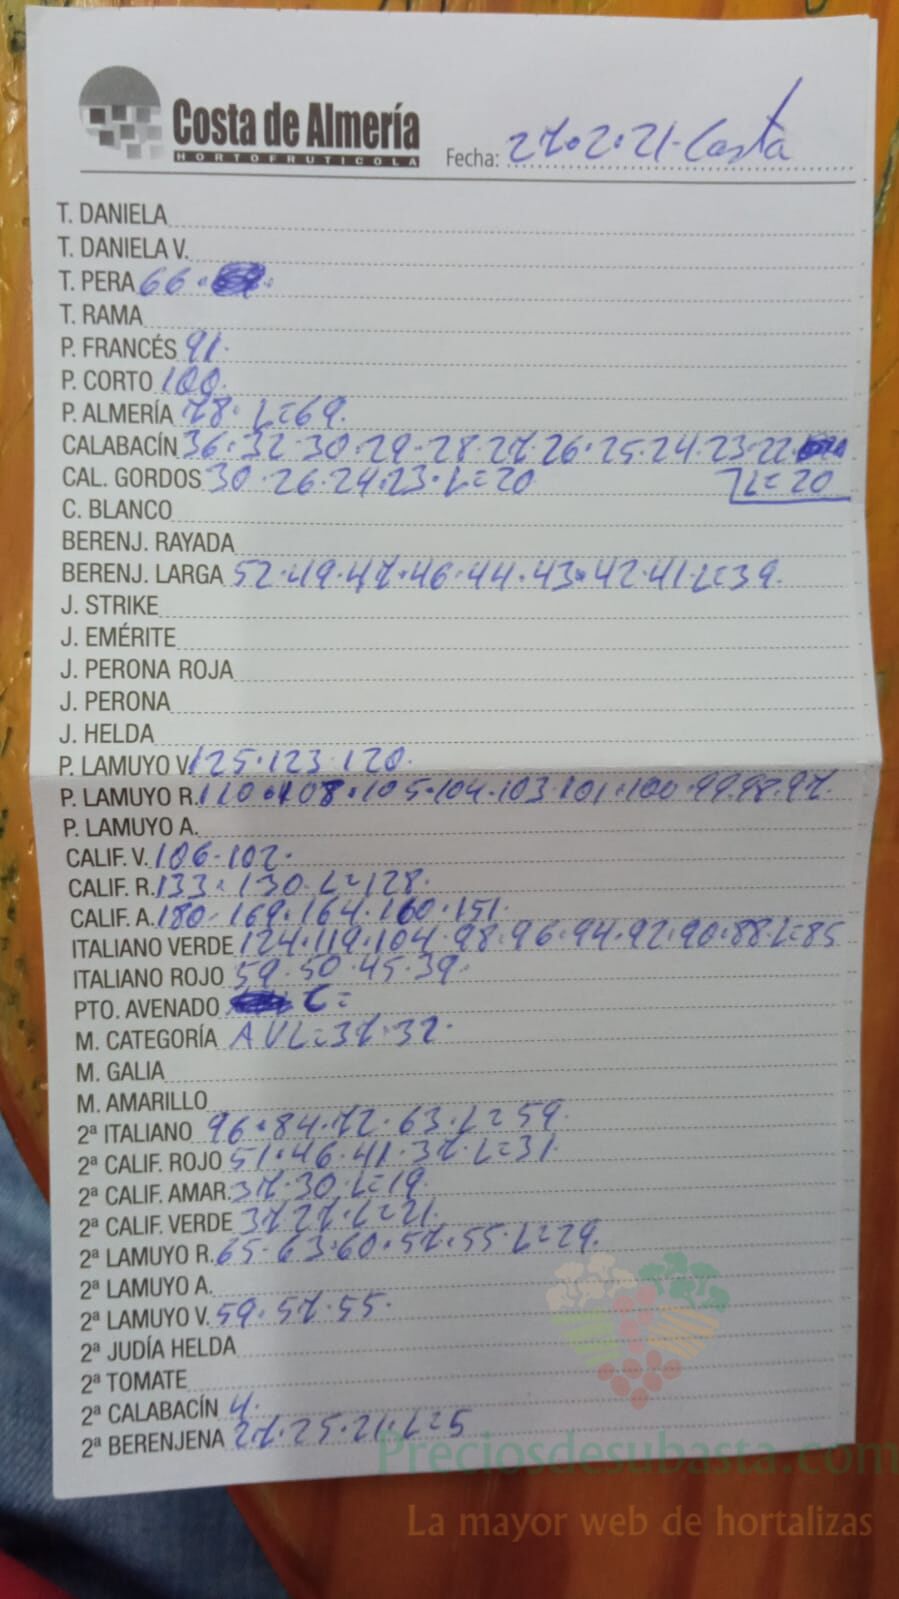 Costa de Almería
HORTOFRUTICOLA
Fecha: 27.2.21-Costa
T. DANIELA
T. DANIELA V.
T. PERA 66.
T. RAMA
P. FRANCÉS 91.
P. CORTO 100.
P. ALMERÍA 78. L=69.
CALABACÍN 36.32.30.29-28.27.26.25.24.23.22.
CAL. GORDOS 30.26.24.23.L=20 L=20
C. BLANCO
BERENJ. RAYADA
BERENJ. LARGA 52.49.47.46.44.43.42.41.L=39.
J. STRIKE
J. EMÉRITE
J. PERONA ROJA
J. PERONA
J. HELDA
P. LAMUYO V. 125.123.120.
P. LAMUYO R. 110.108.105.104.103.101.100.99.98.97.
P. LAMUYO A.
CALIF. V. 106-102.
CALIF. R. 133.130.L=128.
CALIF. A. 180-169.164.160.151.
ITALIANO VERDE 124.119.104.98.96.94.92.90.88.L=85
ITALIANO ROJO 59.50.45.39.
PTO. AVENADO C=
M. CATEGORÍA A V L=37.32.
M. GALIA
M. AMARILLO
2ª ITALIANO 96.84.72.63.L=59.
2ª CALIF. ROJO 51.46.41.37.L=31.
2ª CALIF. AMAR. 37.30.L=19.
2ª CALIF. VERDE 37.27.L=21.
2ª LAMUYO R. 65-63.60.57.55.L=29.
2ª LAMUYO A.
2ª LAMUYO V. 59.57.55.
2ª JUDÍA HELDA
2ª TOMATE
2ª CALABACÍN 4.
2ª BERENJENA 27.25.21.L=5
Preciosdesubasta.com
La mayor web de hortalizas